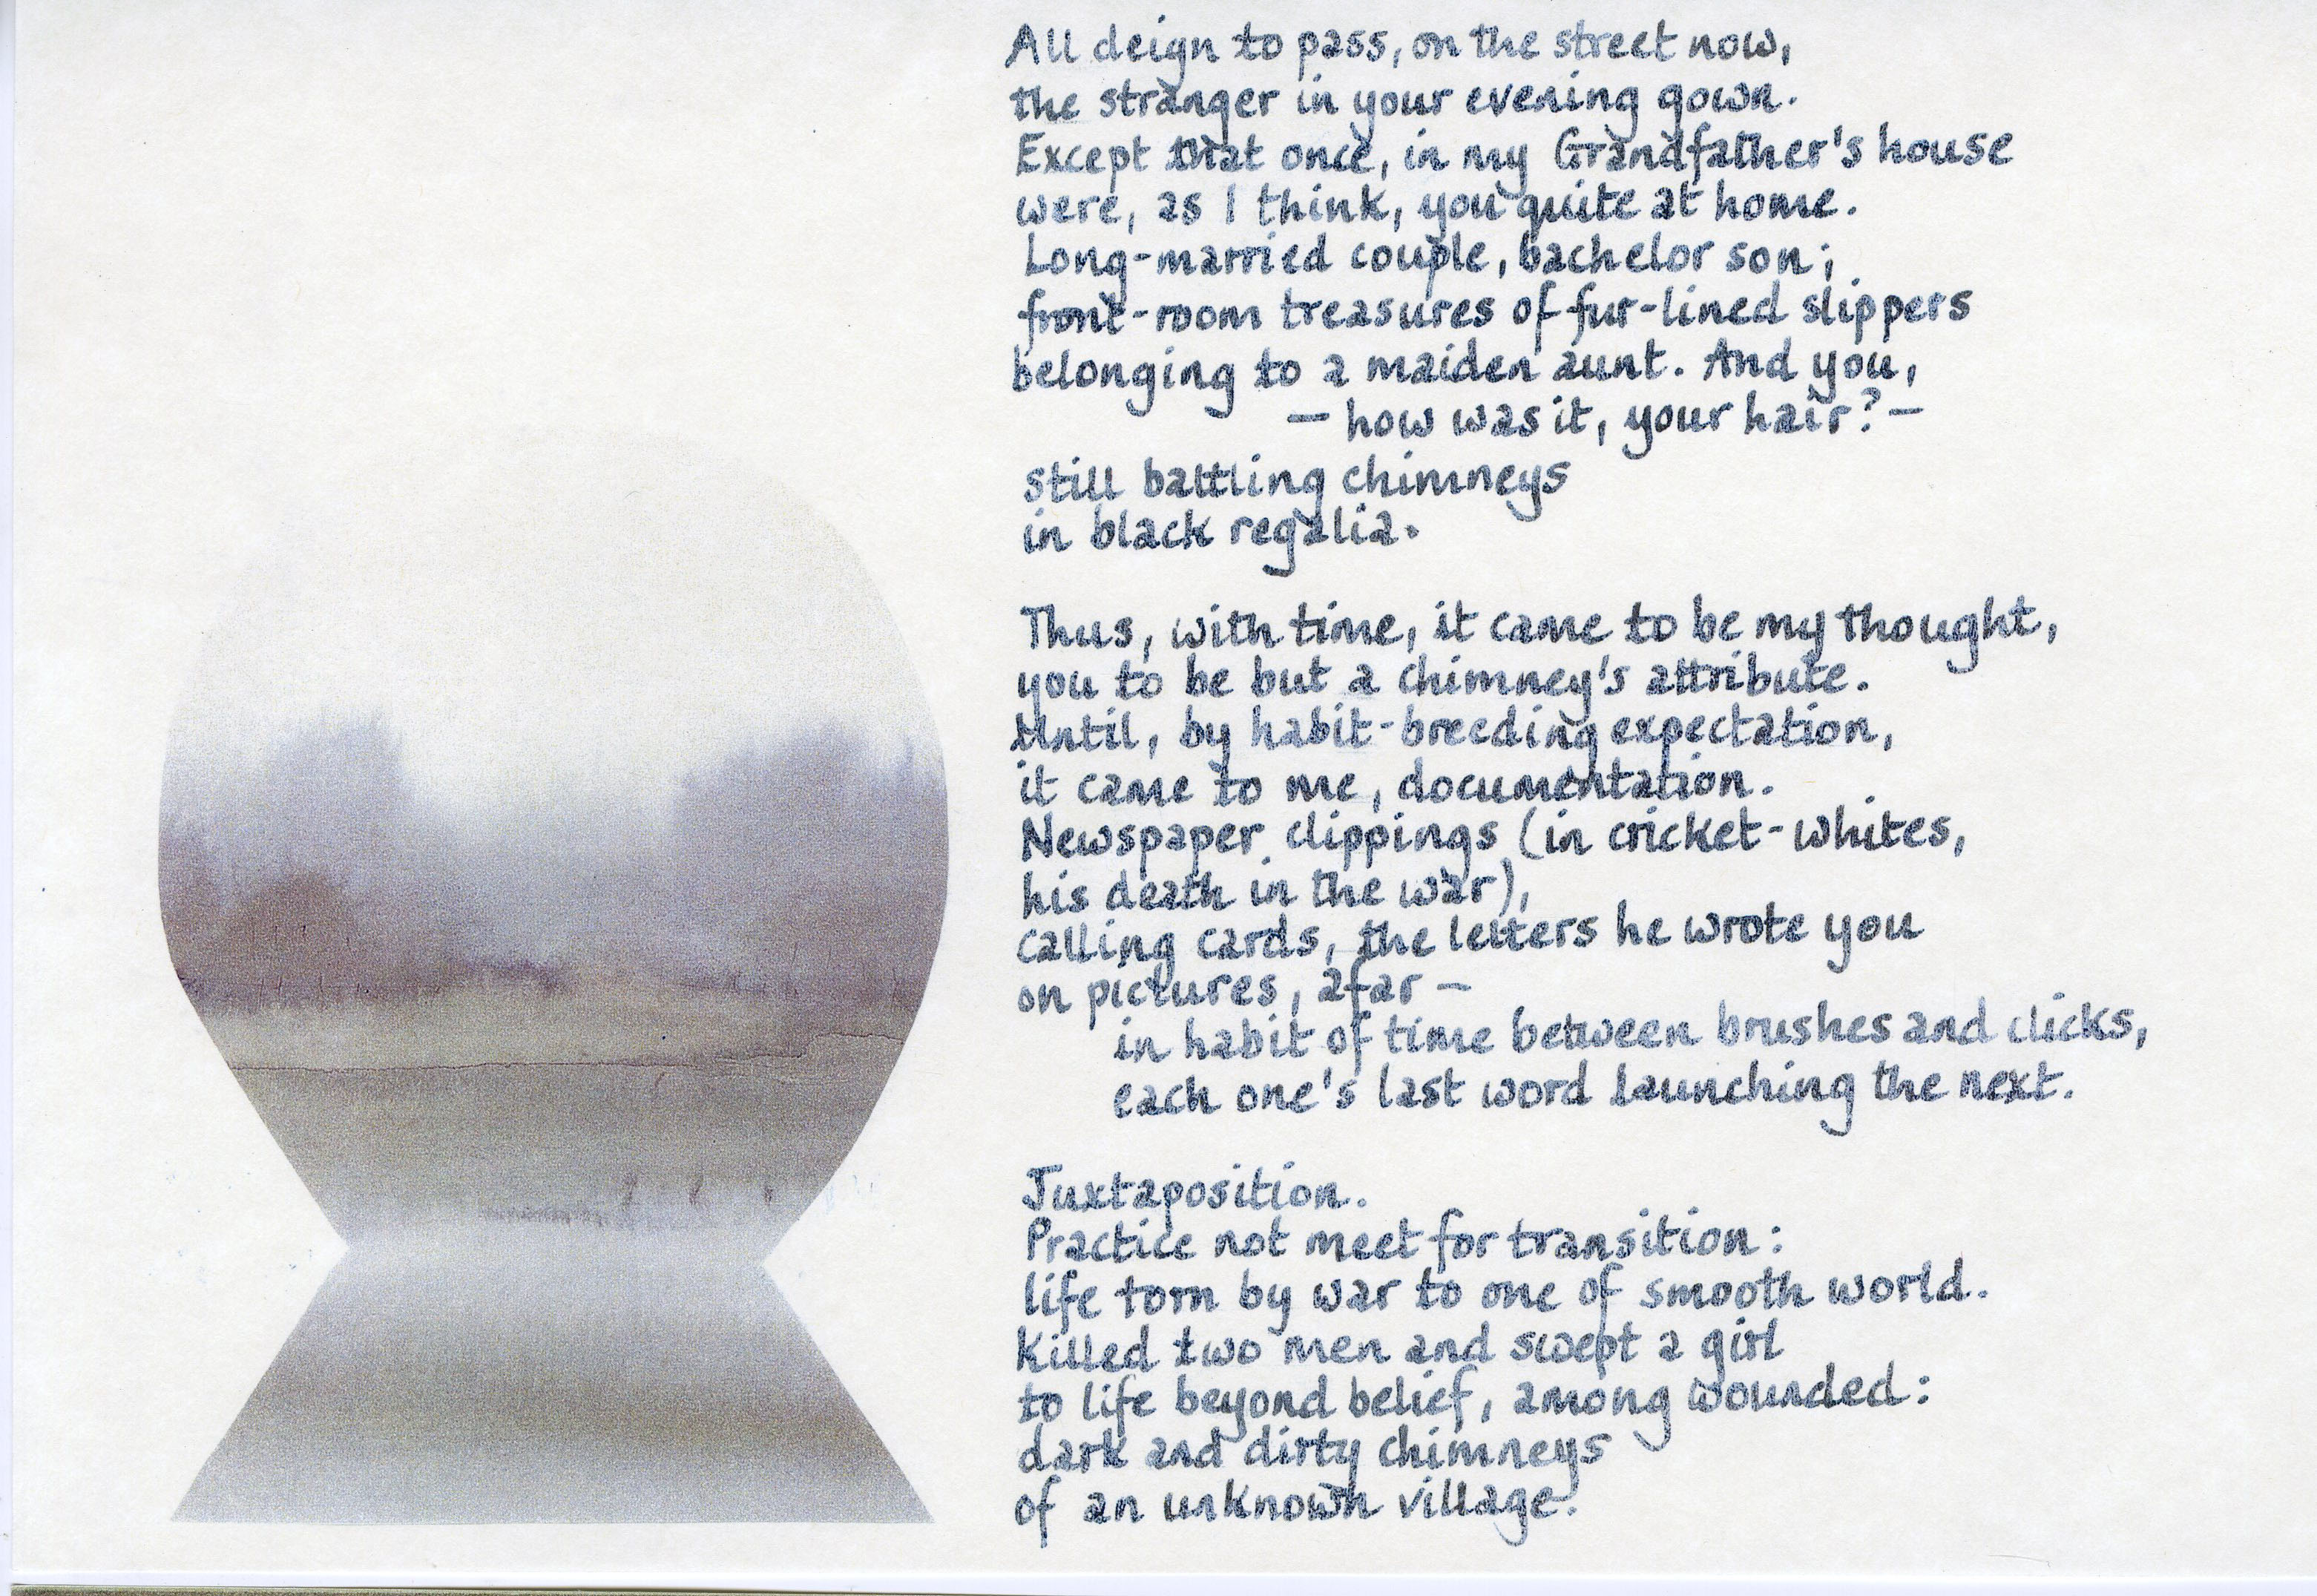 All deign to pass, on the street now,
the stranger in your evening gown.
Except that once, in my Grandfather's house
were, as I think, you quite at home.
Long-married couple, bachelor son;
front-room treasures of fur-lined slippers
belonging to a maiden aunt. And you,
— how was it, your hair? —
still battling chimneys
in black regalia.
Thus, with time, it came to be my thought,
you to be but a chimney's attribute.
Until, by habit-breeding expectation,
it came to me, documentation.
Newspaper clippings (in cricket-whites,
his death in the war),
calling cards, the letters he wrote you
on pictures, afar —
in habit of time between brushes and clicks,
each one's last word launching the next.
Juxtaposition.
Practice not meet for transition:
life torn by war to one of smooth world.
Killed two men and swept a girl
to life beyond belief, among wounded:
dark and dirty chimneys
of an unknown village.